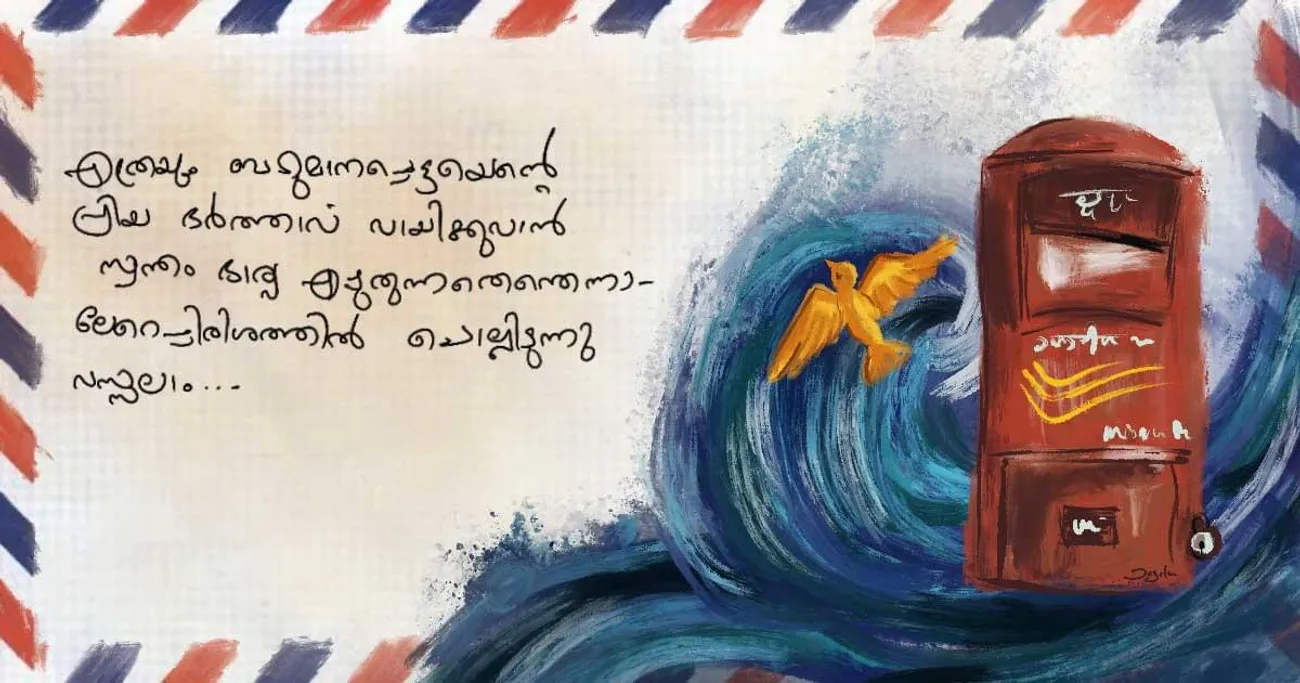 എത്രയും ബഹുമാനപ്പെട്ടയെന്റെ
പ്രിയ ഭർത്താവ് വായിക്കുവാൻ
സ്വന്തം ഭാര്യ എഴുതുന്നതെന്തെന്നാ-
ലേറെപ്പിരിശത്തിൽ ചൊല്ലിടുന്നു
വസ്സലാം...